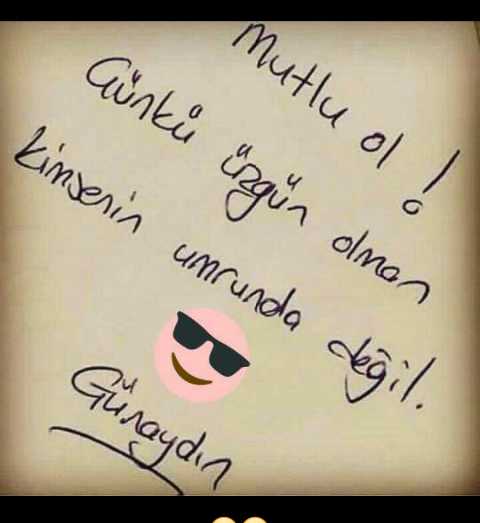 Mutlu ol!
Günkü üzgün olman
kimsenin umrunda değil.
Günaydın